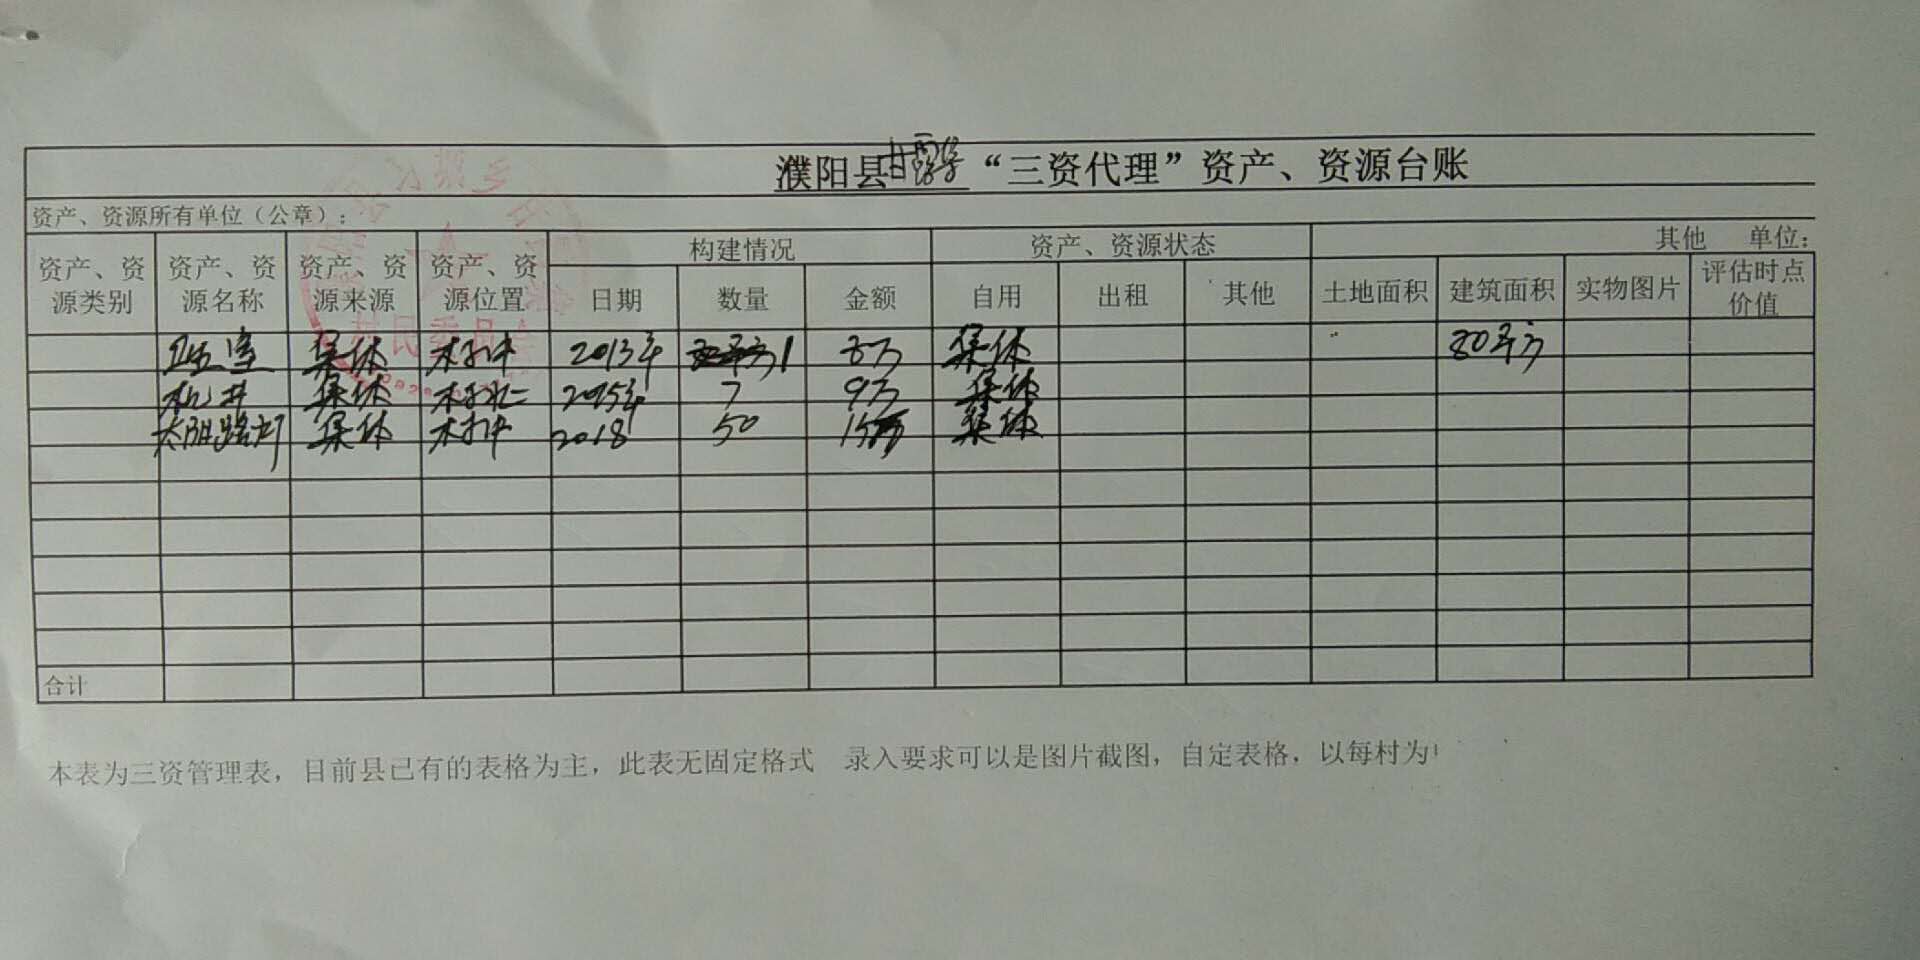 濮阳县 "三资代理" 资产、资源台账
资产、资源所有单位（公章）：
资产、资源类别 资产、资源名称 资产、资源来源 资产、资源位置 构建情况 资产、资源状态 其他 单位：
日期 数量 金额 自用 出租 其他 土地面积 建筑面积 实物图片 评估时点价值
卫生室 集体 村中 2013年 1 8万 集体 80平方
机井 集体 村北 7 9万 集体
太阳路灯 集体 村中 2018 50 15万 集体
合计
本表为三资管理表，目前县已有的表格为主，此表无固定格式 录入要求可以是图片截图，自定表格，以每村为